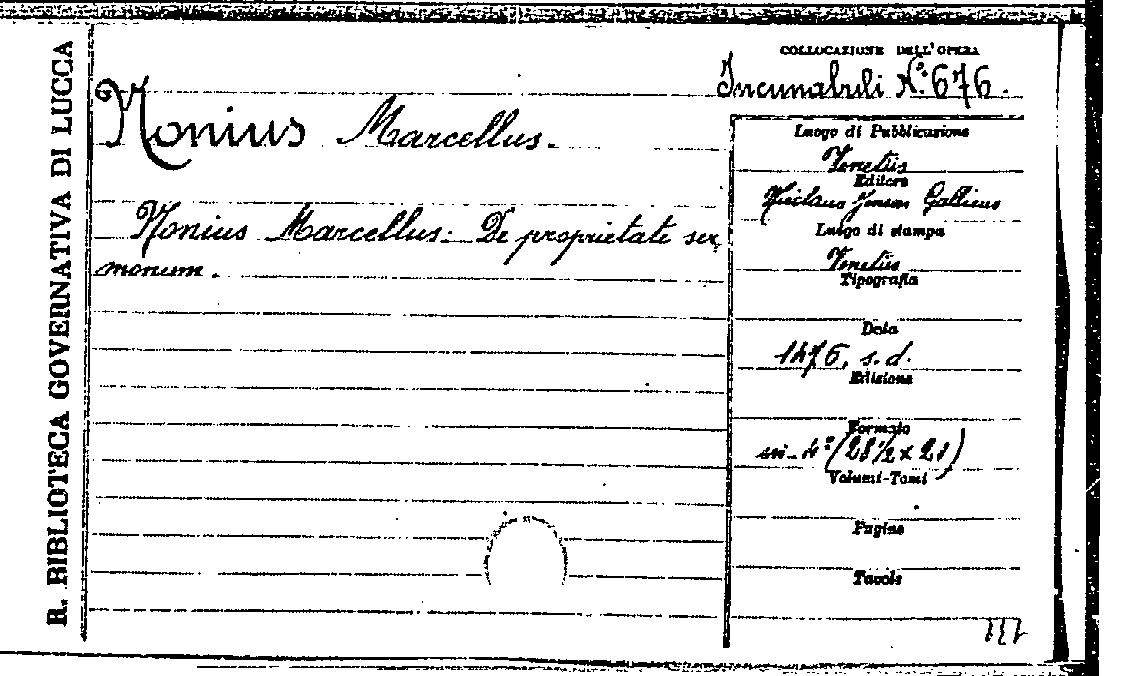 R. BIBLIOTECA GOVERNATIVA DI LUCCA
COLLOCAZIONE DELL'OPERA
Incunabuli N.º 676.
Nonius Marcellus.
Nonius Marcellus: De proprietate ser
monum.
Luogo di Pubblicazione
Venetiis
Editore
Nicolaus Jenson Gallicus
Luogo di stampa
Venetiis
Tipografia
Data
1476, s. d.
Edizione
Formato
in-4º (28½ x 21)
Volumi-Tomi
Pagine
Tavole